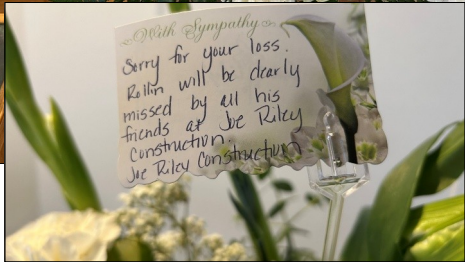 With Sympathy
Sorry for your loss.
Rollin will be dearly
missed by all his
friends at Joe Riley
Construction.
Joe Riley Construction